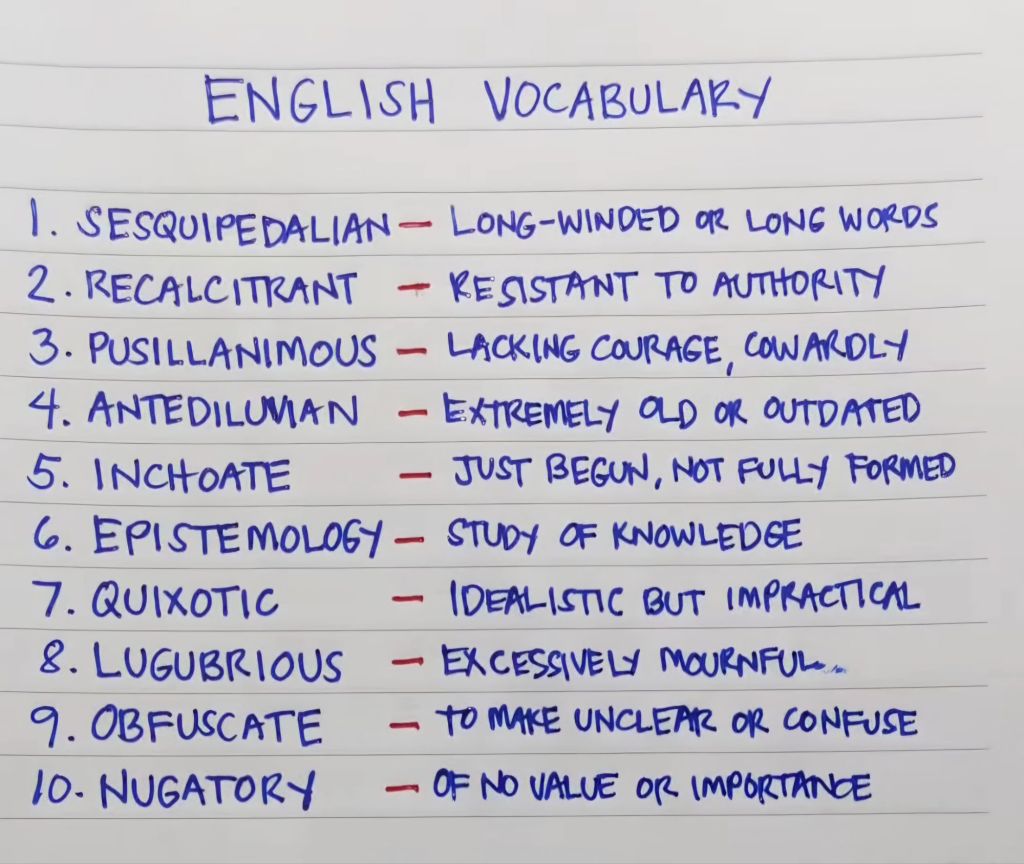 ENGLISH VOCABULARY
1. SESQUIPEDALIAN – LONG-WINDED OR LONG WORDS
2. RECALCITRANT – RESISTANT TO AUTHORITY
3. PUSILLANIMOUS – LACKING COURAGE, COWARDLY
4. ANTEDILUVIAN – EXTREMELY OLD OR OUTDATED
5. INCHOATE – JUST BEGUN, NOT FULLY FORMED
6. EPISTEMOLOGY – STUDY OF KNOWLEDGE
7. QUIXOTIC – IDEALISTIC BUT IMPRACTICAL
8. LUGUBRIOUS – EXCESSIVELY MOURNFUL..
9. OBFUSCATE – TO MAKE UNCLEAR OR CONFUSE
10. NUGATORY – OF NO VALUE OR IMPORTANCE